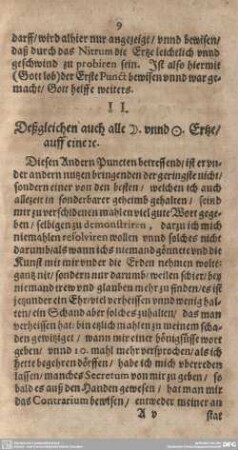 9
darff/ wird alhier nur angezeigt/ vnnd bewisen/
daß durch das Nitrum die Ertze leichtlich vnnd
geschwind zu probiren sein. Ist also hiermit
(Gott lob) der Erste Punct bewisen vnnd war ge-
macht/ Gott helffe weiters.
II.
Deßgleichen auch alle ☽. vnnd ☉. Ertze/
auff eine ꝛc.
Diesen Andern Puncten betreffend/ ist er vn-
der andern nutzen bringenden der geringste nicht/
sondern einer von den besten/ welchen ich auch
allezeit in sonderbarer geheimb gehalten/ seind
mir zu verschidenen mahlen viel gute Wort gege-
ben/ selbigen zu demonstriren, darzu ich mich
niemahlen resolviren wollen vnnd solches nicht
darumb/ als wann ichs niemand gönnete vnd die
Kunst mit mir vnder die Erden nehmen wolte:
gantz nit/ sondern nur darumb/ weilen schier/ bey
niemand trew vnd glauben mehr zu finden/ es ist
jetzunder ein Ehr/ viel verheissen vnnd wenig hal-
ten/ ein Schand aber solches zuhalten/ das man
verheissen hat: bin etzlich mahlen zu meinem scha-
den gewitziget/ wann mir einer hönigsüsse wort
geben/ vnnd 10. mahl mehr versprochen/ als ich
hette begehren dörffen/ habe ich mich vberreden
lassen/ manches Secretum von mir zu geben/ so
bald es auß den Handen gewesen/ hat man mir
das Contrarium bewisen/ entweder meiner an
A v
stat